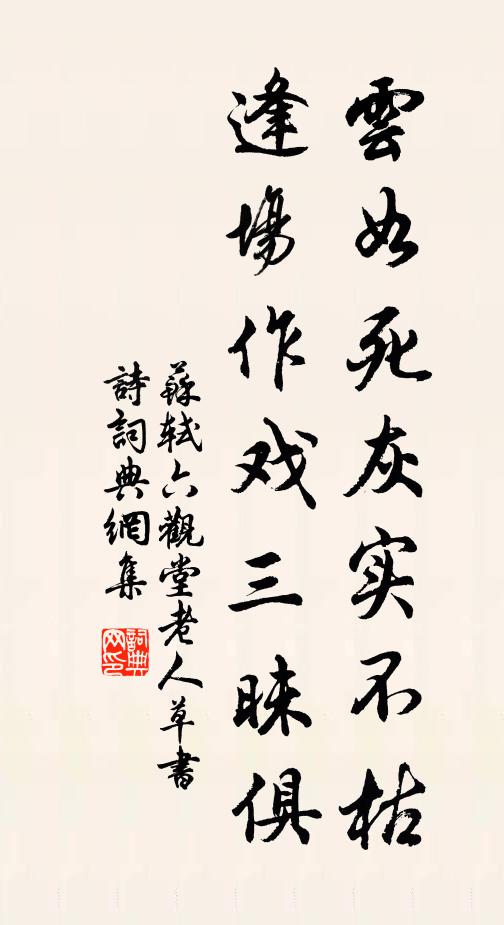 雲如死灰实不枯
逢場作戏三昧俱
蘇軾六觀堂老人草書
詩詞典網集
詞典网印